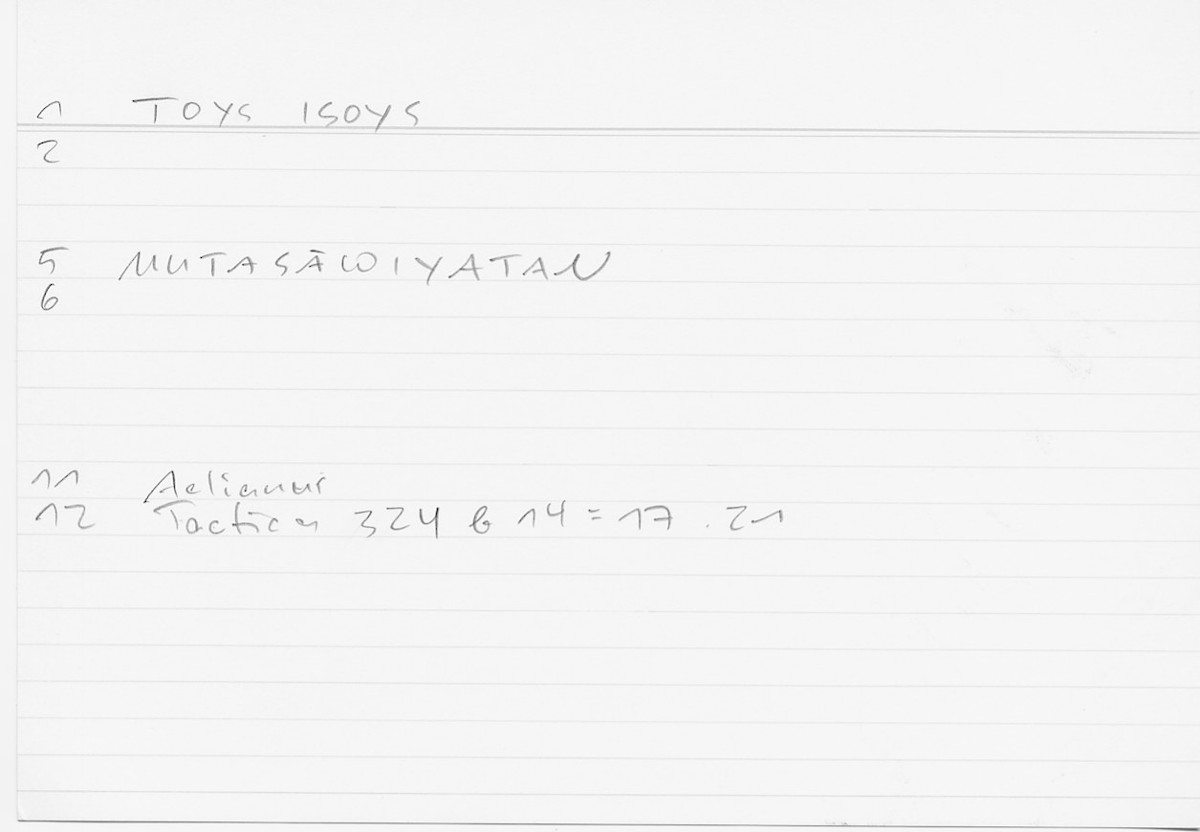 1 TOYS ISOYS
2
5 MUTASĀWIYATAN
6
11 Aelianus
12 Tactica 324 b 14 = 17.21